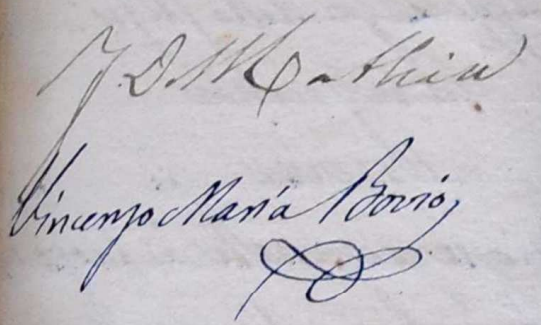 J. D. Mathieu
Vincenzo Maria Bovio